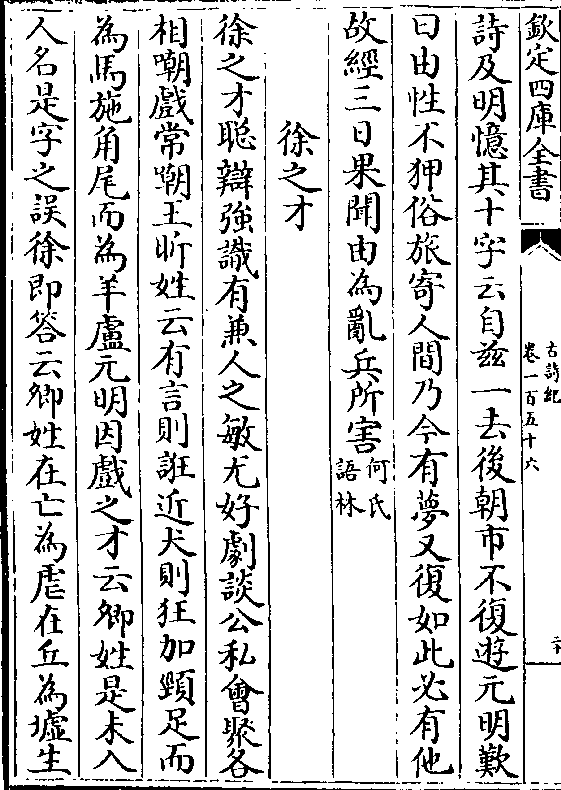 欽定四庫全書
古詩紀
卷一百五十六
詩及明憶其十字云自兹一去後朝市不復遊元明歎
曰由性不狎俗旅寄人間乃今有夢又復如此必有他
故經三日果聞由為亂兵所害何氏語林
徐之才
徐之才聰辯強識有兼人之敏尤好劇談公私會聚各
相嘲戲常嘲王昕姓云有言則誑近犬則狂加頸足而
為馬施角尾而為羊盧元明因戲之才云卿姓是未入
人名是字之誤徐即答云卿姓在亡為虐在丘為墟生